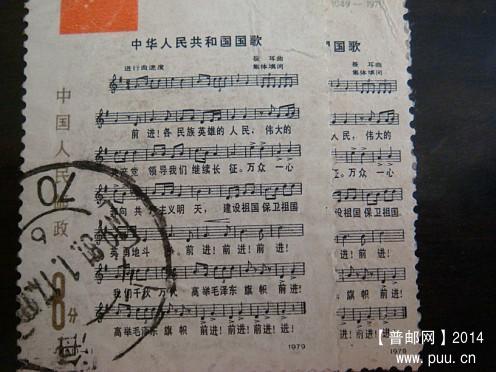 1949-197
中华人民共和国国歌
国歌
进行曲速度
聂 耳曲
集体填词
聂 耳曲
集体填词
前 进!各 民族英雄的 人 民, 伟大的
人 民, 伟大的
共产党 领导我们 继续长 征。万众 一心
征。万众 一心
奔向 共 主义明 天, 建设祖国 保卫祖国
建设祖国 保卫祖国
英 勇地斗 前进!前进!前进!
前进!前进!前进!
我们千秋 万代 高举毛泽东 旗帜 前进!
旗 帜 前进!
高举毛泽东 旗帜 前进!前进!前进!进!
前进!前进!前进!进!
中国人民邮政
8分
70
1979
1979
【普邮网】2014
www.puu.cn